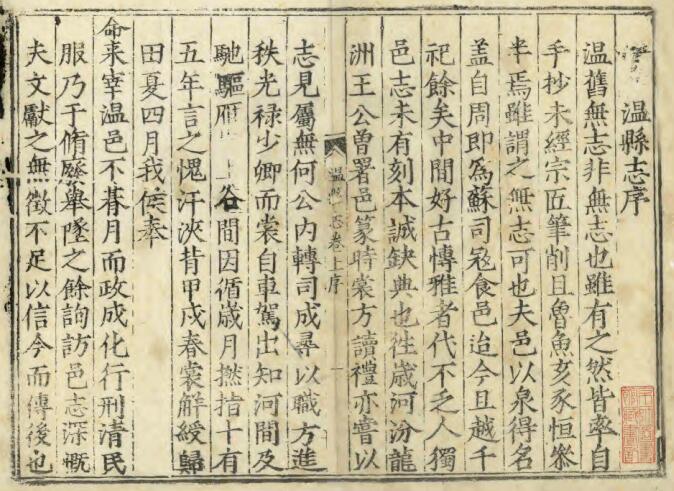 温縣志序
温舊無志非無志也雖有之然皆率自
手抄未經宗匠筆削且魯魚亥豕恒叅
半焉雖謂之無志可也夫邑以泉得名
盖自周即爲蘇司冦食邑迨今且越千
祀餘矣中間好古慱雅者代不乏人獨
邑志未有刻本誠缺典也徃歳河汾龍
洲王公曽署邑篆時裳方讀禮亦甞以
温縣志卷上序
志見屬無何公内轉司成尋以職方進
秩光禄少卿而裳自車駕出知河間及
馳驅雁上谷間因循歳月撚指十有
五年言之愧汗浹背甲戌春裳解綬歸
田夏四月我侯奉
命来宰温邑不朞月而政成化行刑清民
服乃于脩廢舉墜之餘詢訪邑志深慨
夫文獻之無徵不足以信今而傳後也